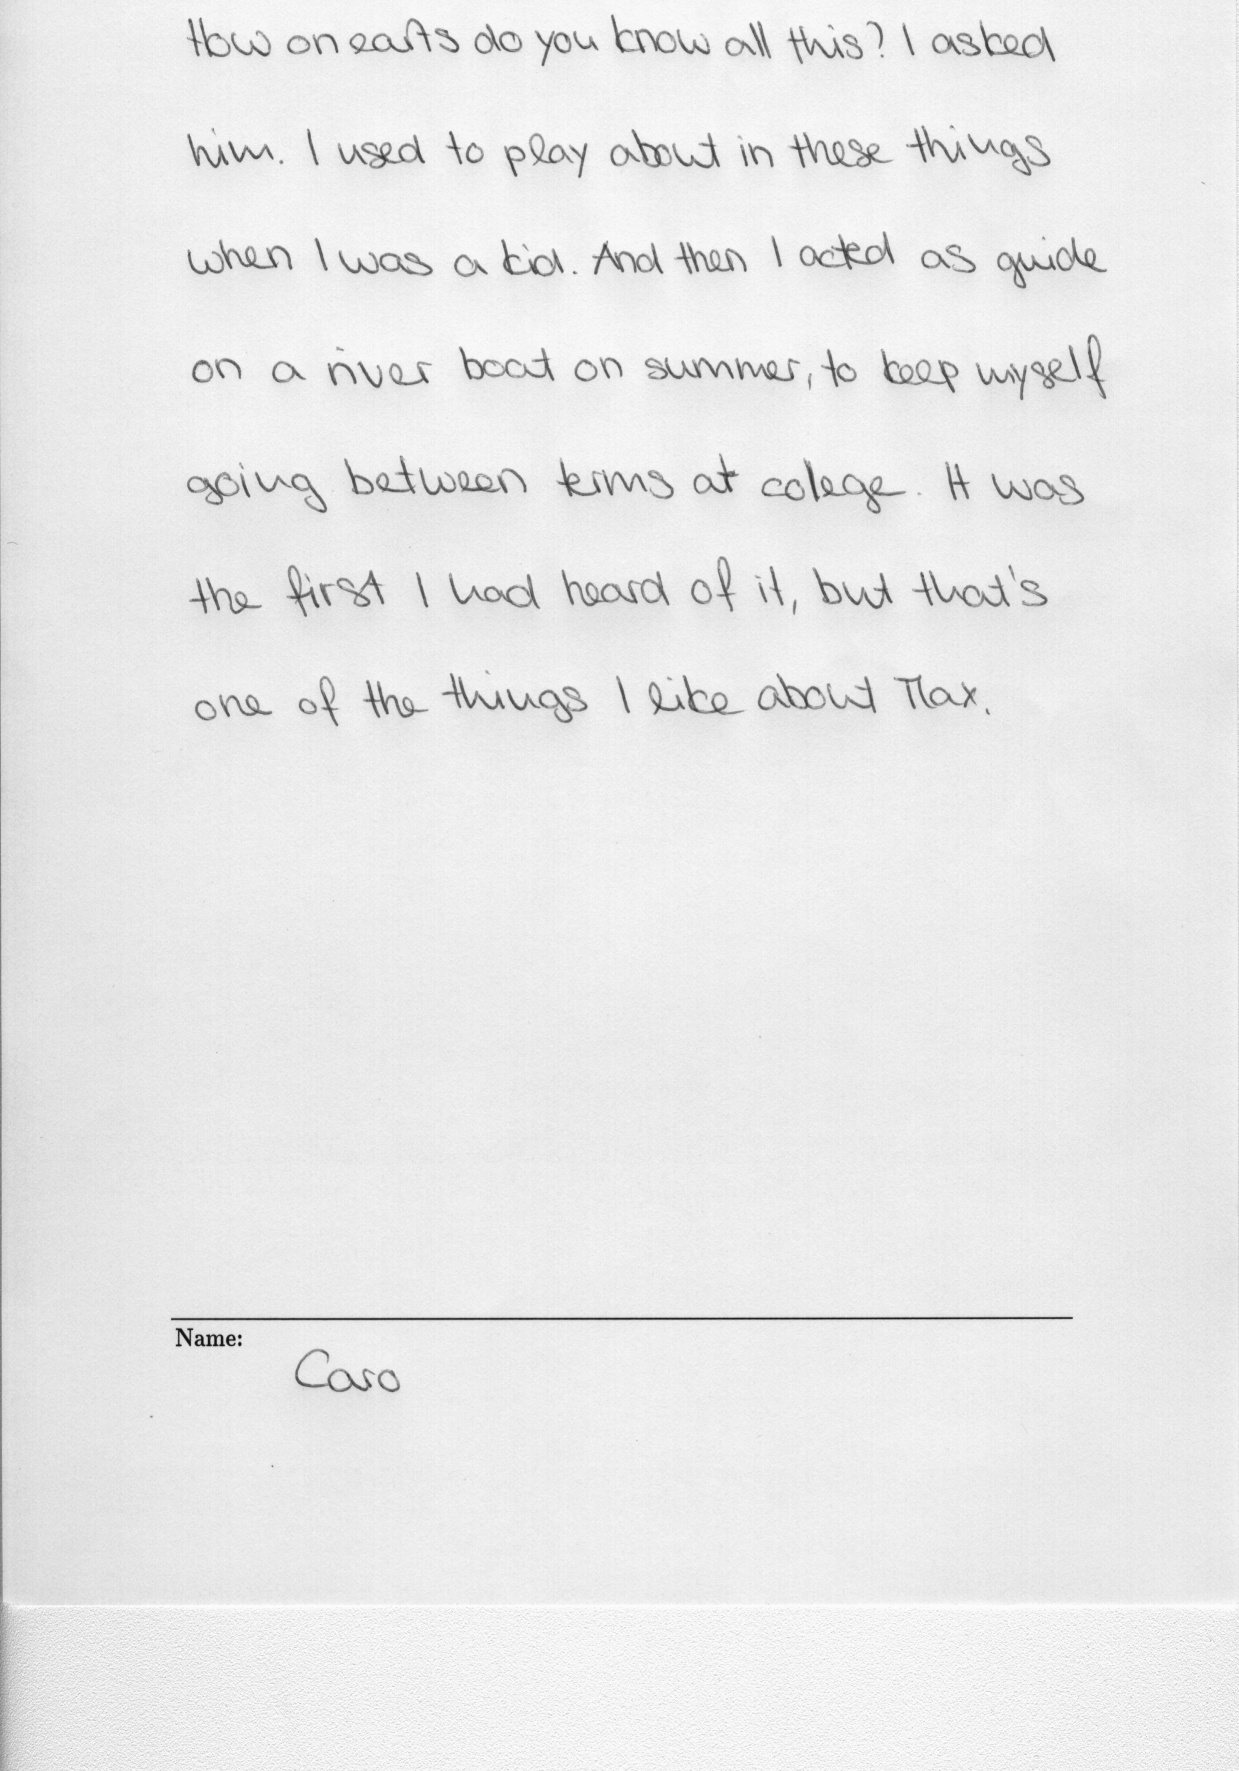 How on earths do you know all this? I asked
him. I used to play about in these things
when I was a kid. And then I acted as guide
on a river boat on summer, to keep myself
going between terms at colege. It was
the first I had heard of it, but that's
one of the things I like about Max.
Name:
Caro